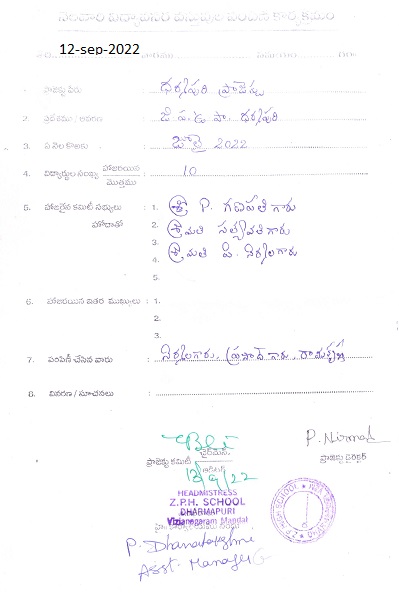 నెలవారీ విద్యాపరికర వస్తువుల పంపిణీ కార్యక్రమం
12-sep-2022
1. ప్రాజెక్టు పేరు : ధర్మపురి ప్రాజెక్టు
2. ప్రదేశము / వివరణ : జి.ప.ఉ.పా. ధర్మపురి
3. ఏ నెల కొరకు : జూలై 2022
4. విద్యార్థుల సంఖ్య హాజరయిన / మొత్తము : 10
5. హాజరైన కమిటీ సభ్యులు : 1. శ్రీ P. గణపతి గారు
హోదాతో 2. శ్రీమతి సత్యవతి గారు
3. శ్రీమతి పి. నిర్మల గారు
4.
5.
6. హాజరయిన ఇతర ముఖ్యులు : 1.
2.
3.
7. పంపిణీ చేసిన వారు : నిర్మల గారు, ప్రసాద్ గారు, రామకృష్ణ
8. వివరణ / సూచనలు :
P. Nirmal
ప్రాజెక్టు కమిటీ చైర్మన్
ప్రాజెక్టు డైరెక్టర్
13/9/22
HEADMISTRESS
Z.P.H. SCHOOL
DHARMAPURI
Vizianagaram Mandal
P. Dhanalakshmi
Asst. Manager